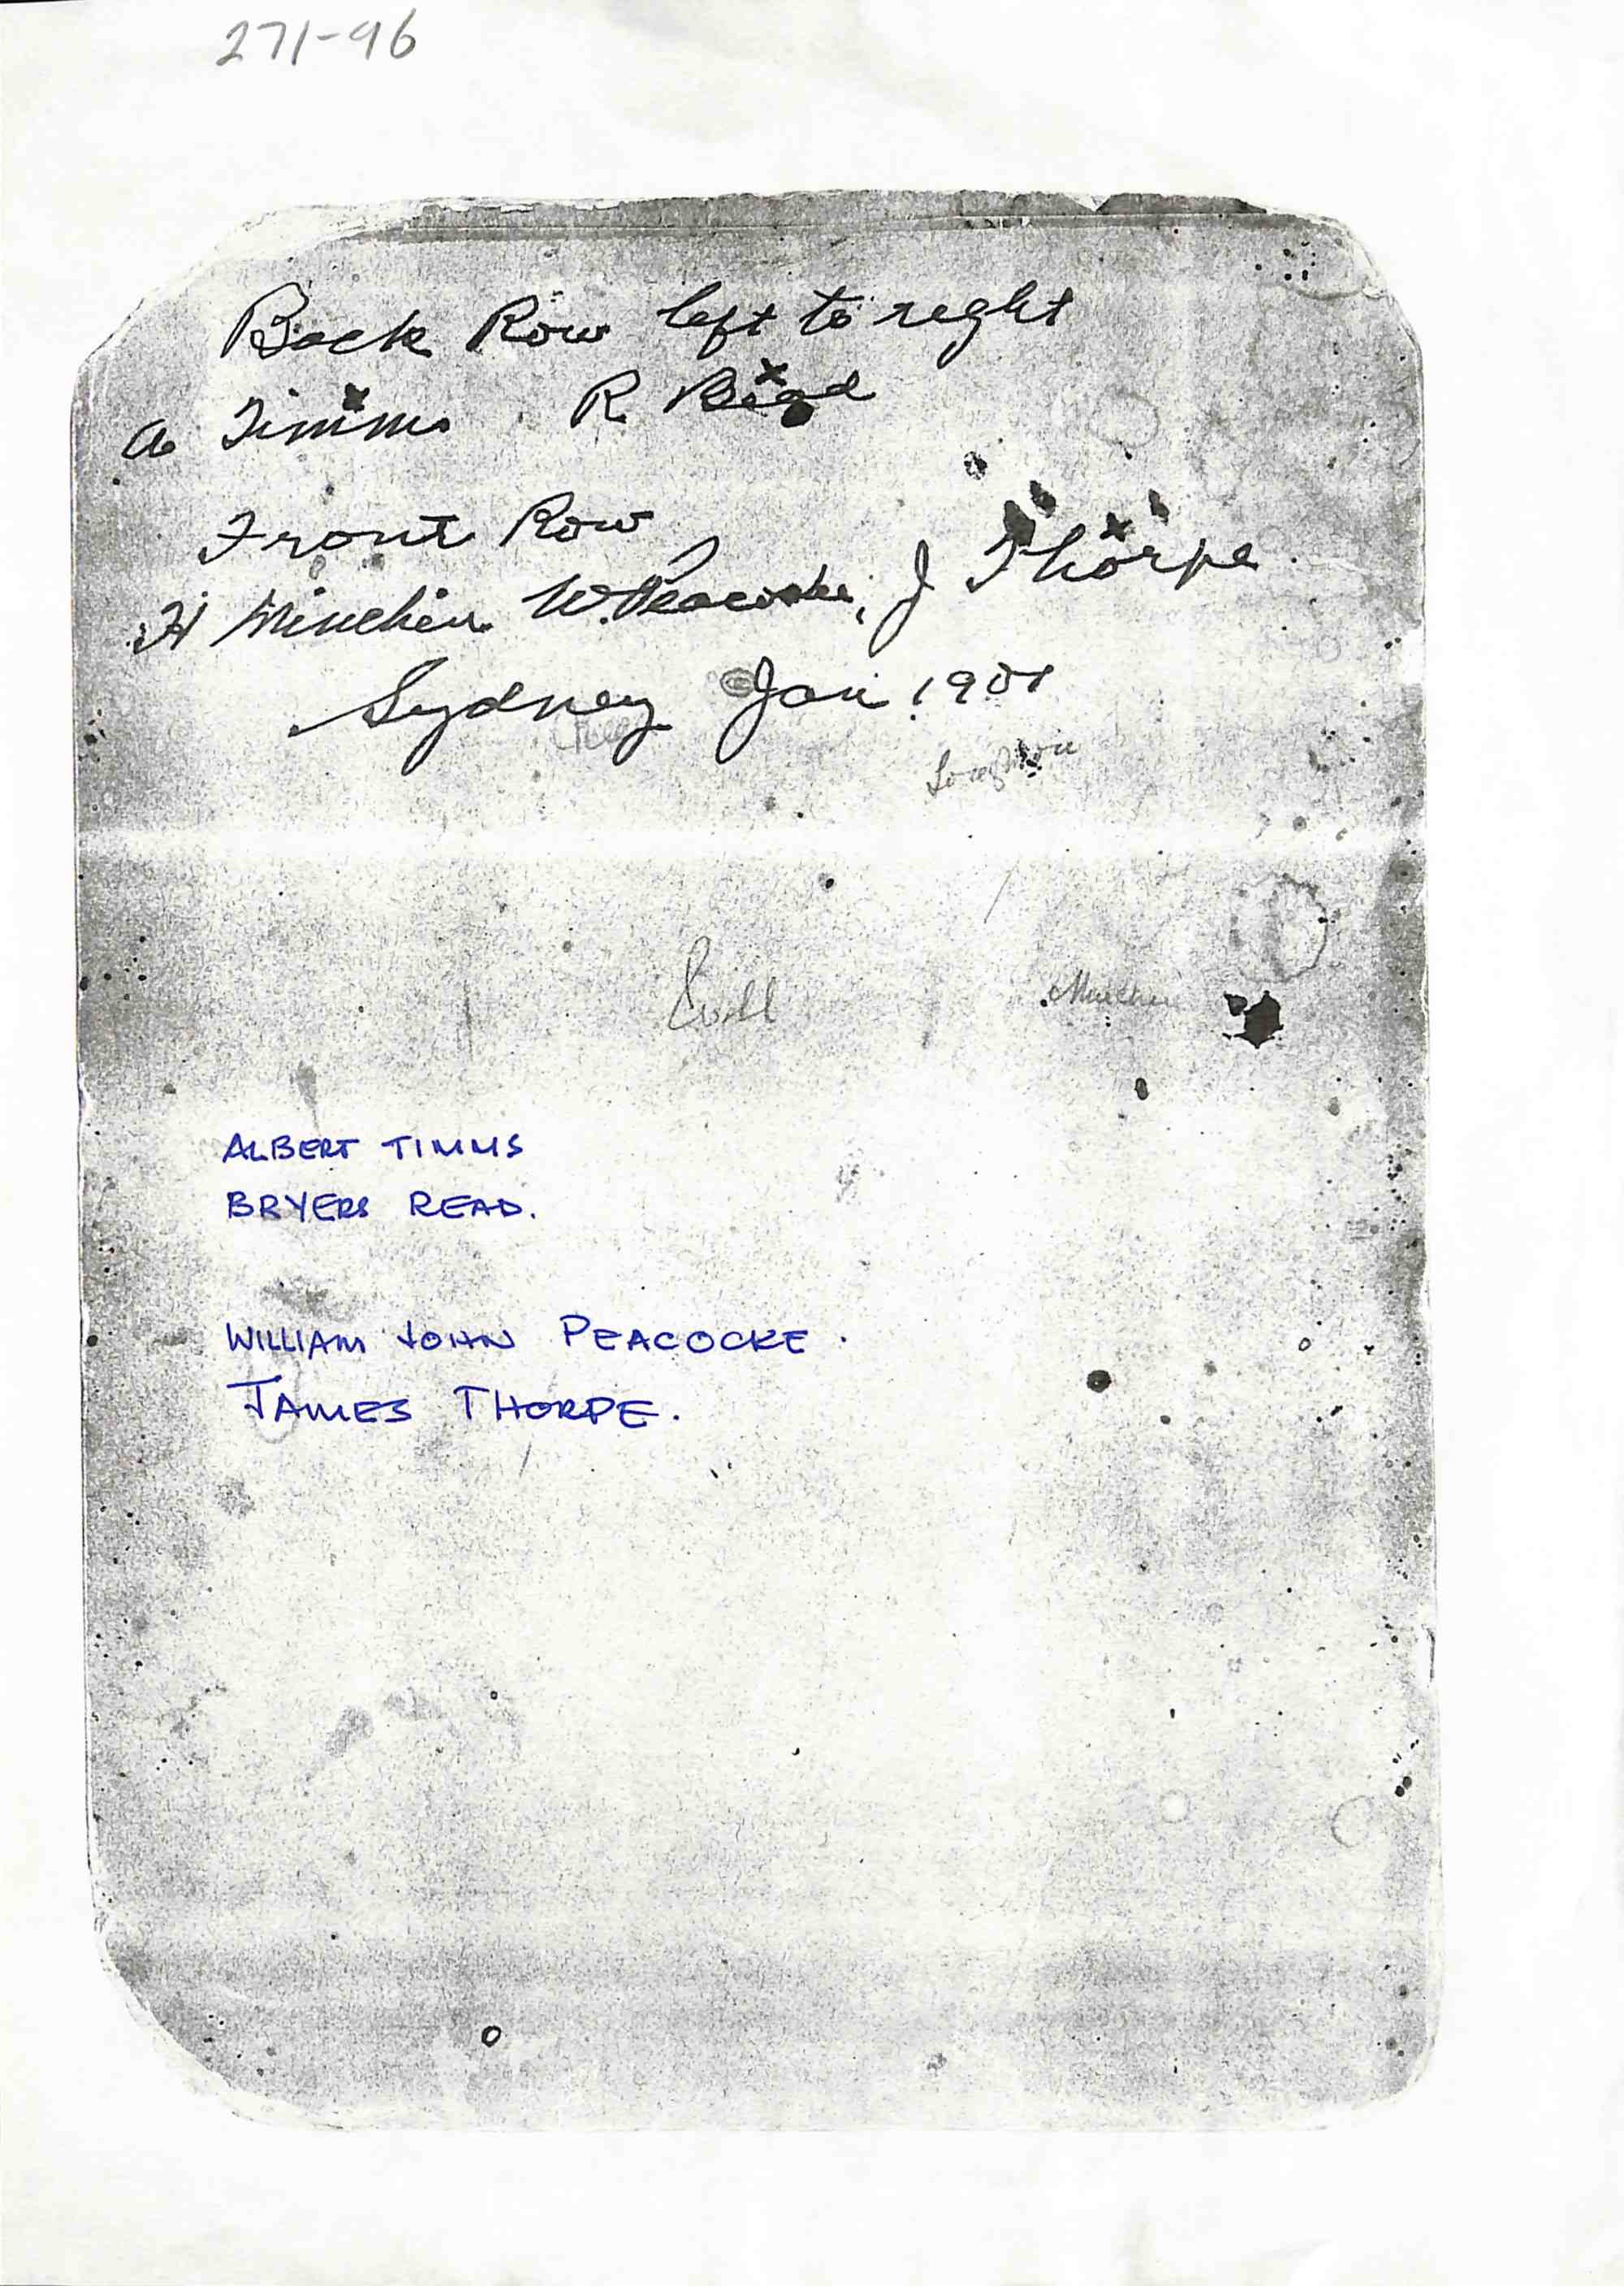 271-96
Back Row left to right
A Timms R Read
Front Row
H Minchin W. Peacocke, J Thorpe
Sydney Jan 1901
ALBERT TIMMS
BRYERS READ.
WILLIAM JOHN PEACOCKE.
JAMES THORPE.